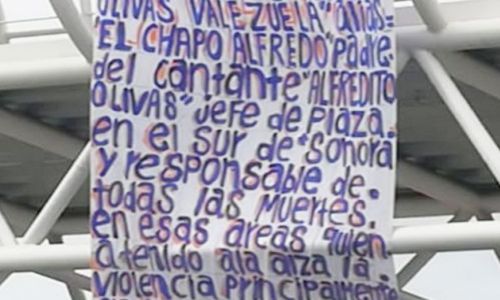 OLIVAS VALEZUELA" alias=
"EL CHAPO ALFREDO" Padre.
del cantante "ALFREDITO
OLIVAS" Jefe de Plaza.
en el sur de "Sonora
y responsable de.
todas las Muertes.
en esas áreas quien
a tenido ala alza la.
violencia principalmente